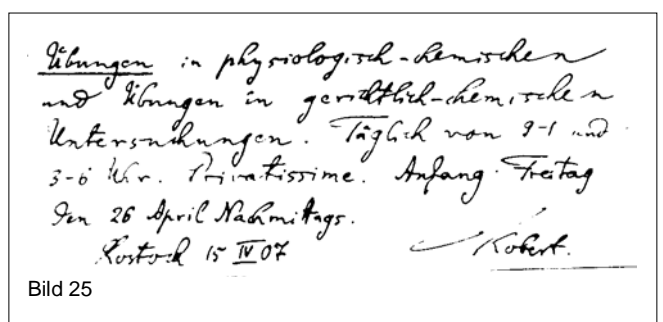 Übungen in physiologisch-chemischen
und Übungen in gerichtlich-chemischen
Untersuchungen. Täglich von 9-1 und
3-6 Uhr. Privatissime. Anfang Freitag
den 26 April Nachmittags.
Rostock 15 IV 07 Kobert.
Bild 25